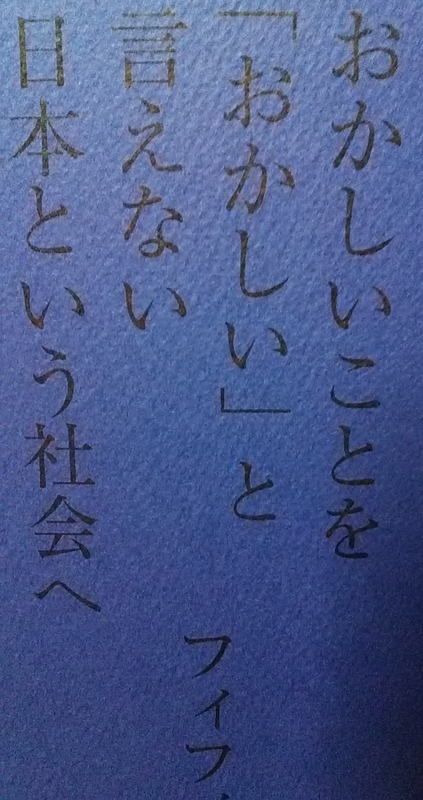 おかしいことを
「おかしい」と
言えない
日本という社会へ
フィフ